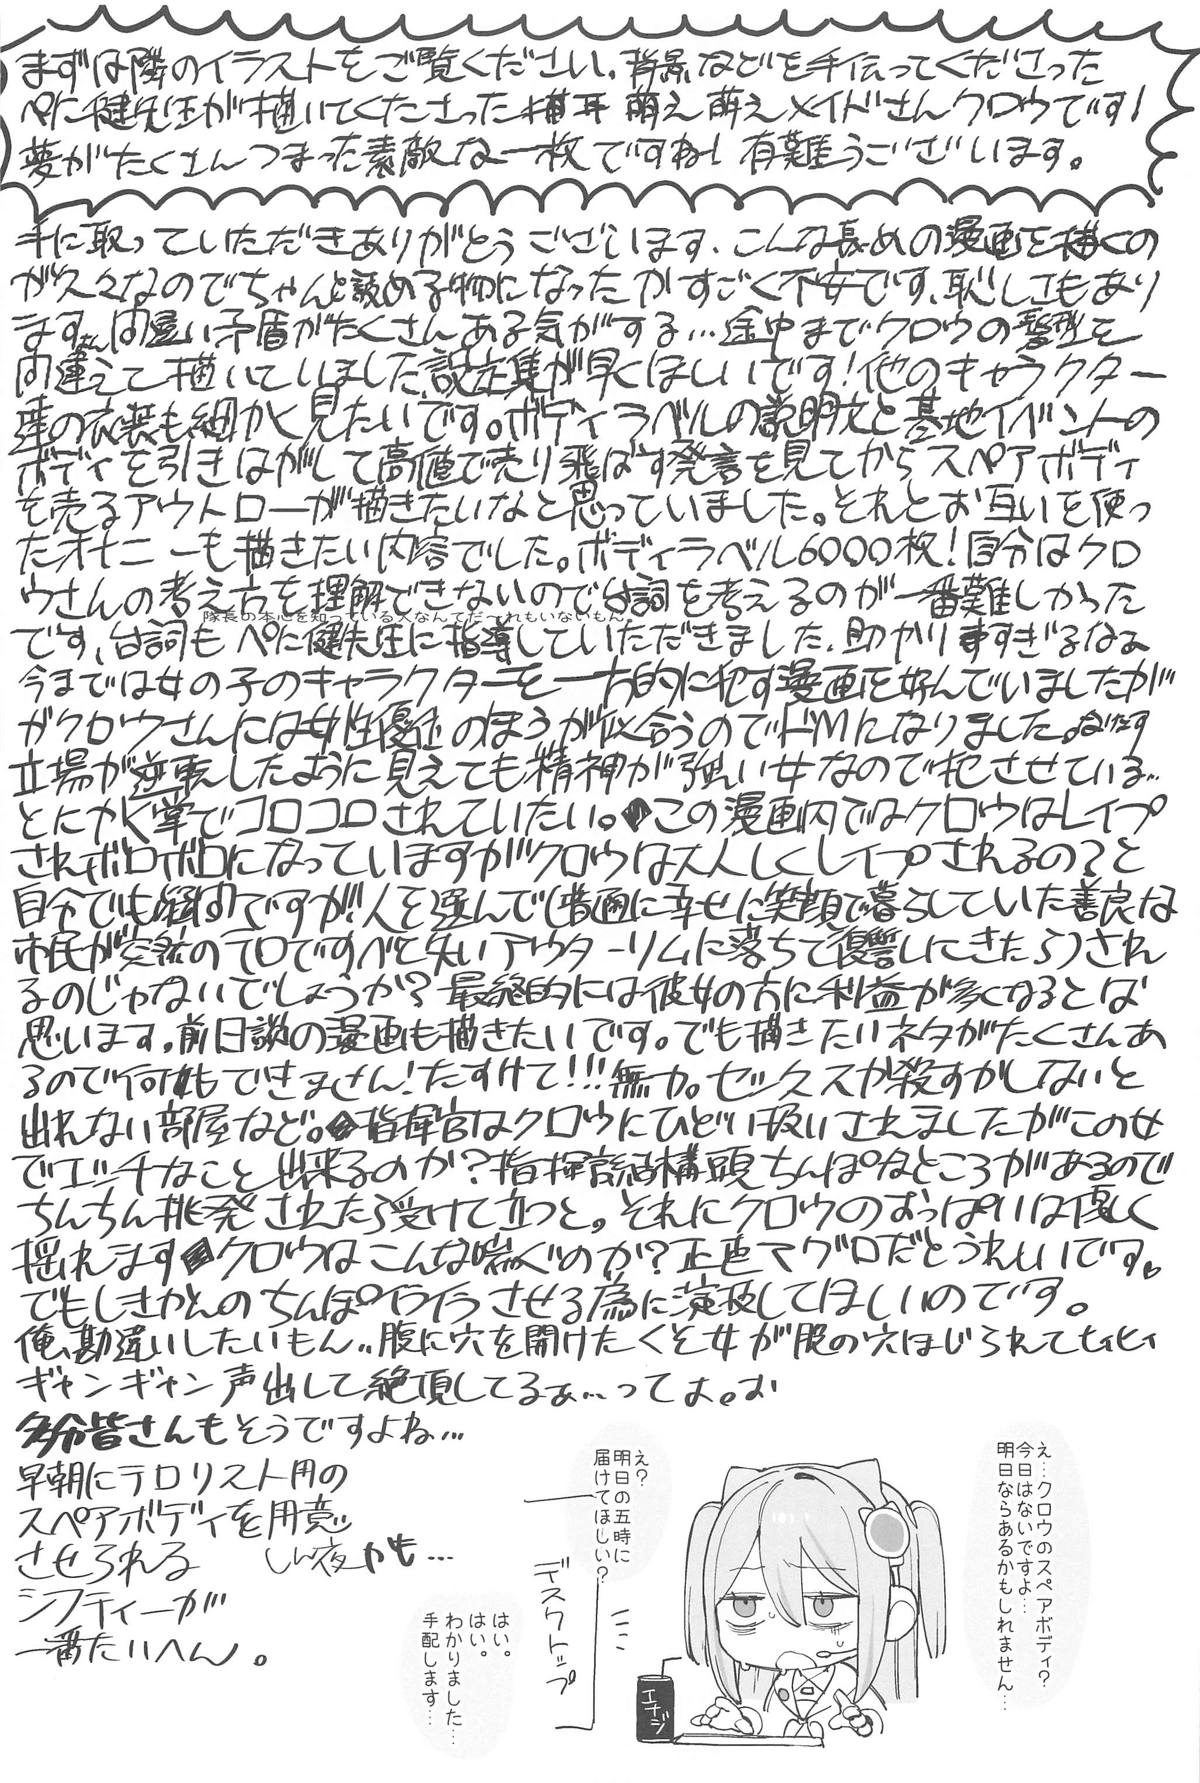 まずは隣のイラストをご覧ください。背景などを手伝ってくださった
ぺに健先生が描いてくださった猫耳萌え萌えメイドさんクロウです!
夢がたくさんつまった素敵な一枚ですね!有難うございます。
手に取っていただきありがとうございます、こんな長めの漫画を描くの
が久々なのでちゃんと読める物になったかすごく不安です、恥しさもあり
ます。間違い矛盾がたくさんある気がする…途中までクロウの髪型を
間違えて描いていました設定集が早くほしいです!他のキャラクター
達の衣装も細かく見たいです。ボディラベルの説明文と基地イベントの
ボディを引きはがして高値で売り飛ばす発言を見てからスペアボディ
を売るアウトローが描きたいなと思っていました。それとお互いを使っ
たオナニーも描きたい内容でした。ボディラベル6000枚!自分はクロ
ウさんの考え方を理解できないので台詞を考えるのが一番難しかった
隊長の本心を知っている人なんてだーれもいないもん。
です、台詞もぺに健先生に指導していただきました、助かりすぎるなぁ
今までは女の子のキャラクターを一方的に犯す漫画を好んでいましたが
がクロウさんには女性優位のほうが似合うのでドMになりました。
立場が逆転したように見えても精神が強い女なので犯させている…
とにかく掌でコロコロされていたい。この漫画内ではクロウはレイプ
されボロボロになっていますがクロウは大人しくレイプされるの?と
自分でも疑問ですが!人を選んで(普通に幸せに笑顔で暮らしていた善良な
市民が突然のテロですべてを失いアウターリムに落ちて復讐しにきたら)され
るのじゃないでしょうか?最終的には彼女の方に利益が多くなるとは
思います。前日談の漫画も描きたいです。でも描きたいネタがたくさんあ
るので何もできません!たすけて!!!無力。セックスか殺すかしないと
出れない部屋など。指揮官はクロウにひどい扱いされましたがこの女
でエッチなこと出来るのか?指揮官結構頭ちんぽなところがあるので
ちんちん挑発されたら受けて立つと。それにクロウのおっぱいは優しく
揺れます クロウはこんな喘ぐのか?正直マグロだとうれしいです。
でもしきかんのちんぽイライラさせる為に演技してほしいのです。
俺、勘違いしたいもん…腹に穴を開けたくそ女が股の穴ほじられてヒィヒィ
ギャンギャン声出して絶頂してるぁ…ってよ。お
多分皆さんもそうですよね…
早朝にテロリスト用の
スペアボディを用意
させられる しん夜かも…
シフティーが
一番たいへん。
え…クロウのスペアボディ?
今日はないですよ…
明日ならあるかもしれません…
え?
明日の五時に
届けてほしい?
デスクトップ
はい。
はい。
わかりました…
手配します…
エナジ